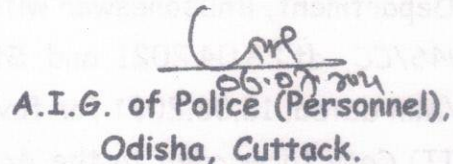 A.I.G. of Police (Personnel),
Odisha, Cuttack.